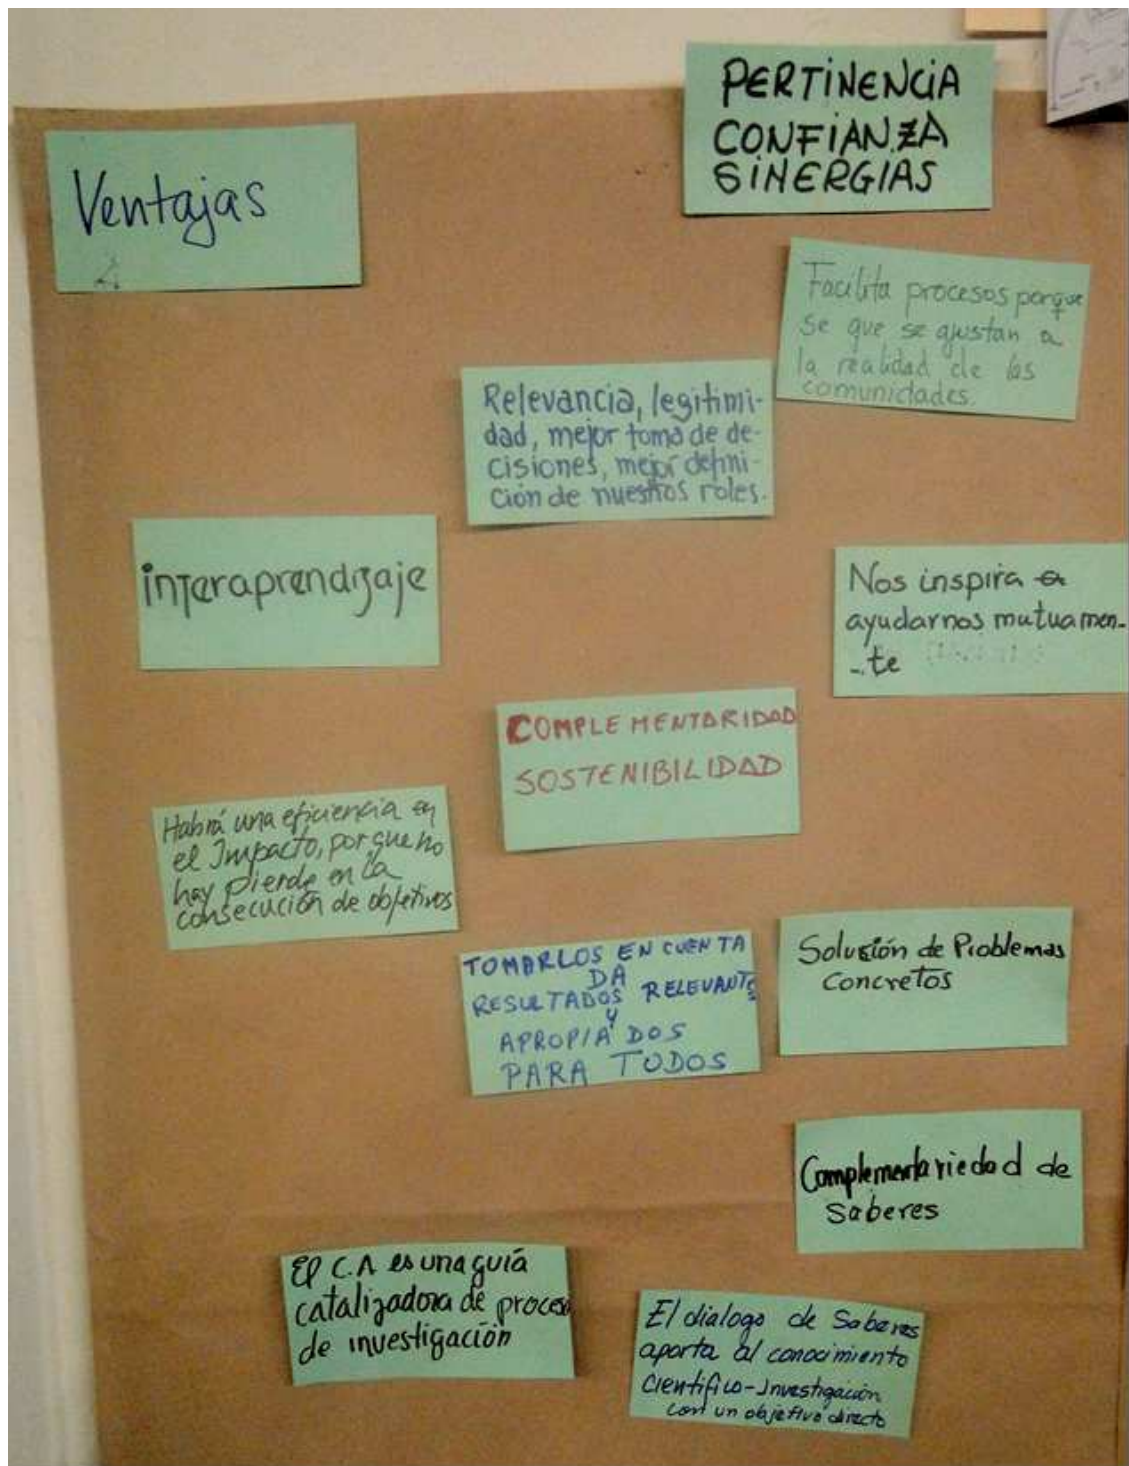 PERTINENCIA
CONFIANZA
SINERGIAS
Ventajas
Facilita procesos porque
se que se ajustan a
la realidad de las
comunidades.
Relevancia, legitimi-
dad, mejor toma de de-
cisiones, mejor defini-
ción de nuestros roles.
interaprendizaje
Nos inspira a
ayudarnos mutuamen-
-te
COMPLEMENTARIDAD
SOSTENIBILIDAD
Habrá una eficiencia en
el Impacto, porque no
hay pierde en la
consecución de objetivos
TOMARLOS EN CUENTA
DA
RESULTADOS RELEVANTES
Y
APROPIADOS
PARA TODOS
Solución de Problemas
Concretos
Complementariedad de
Saberes
El C.A es una guía
catalizadora de proceso
de investigación
El dialogo de Saberes
aporta al conocimiento
Científico-Investigación
con un objetivo directo